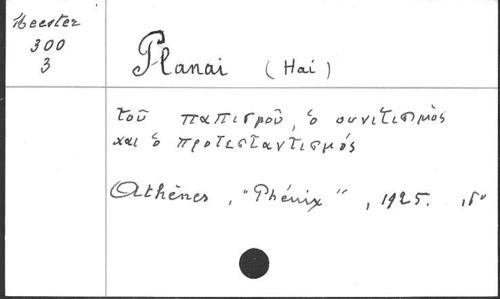 Meester
300
3
Planai (Hai)
τοῦ παπισμοῦ, ὁ ουνιτισμὸς
και ὁ προτεσταντισμός
Athènes, "Phénix", 1925.